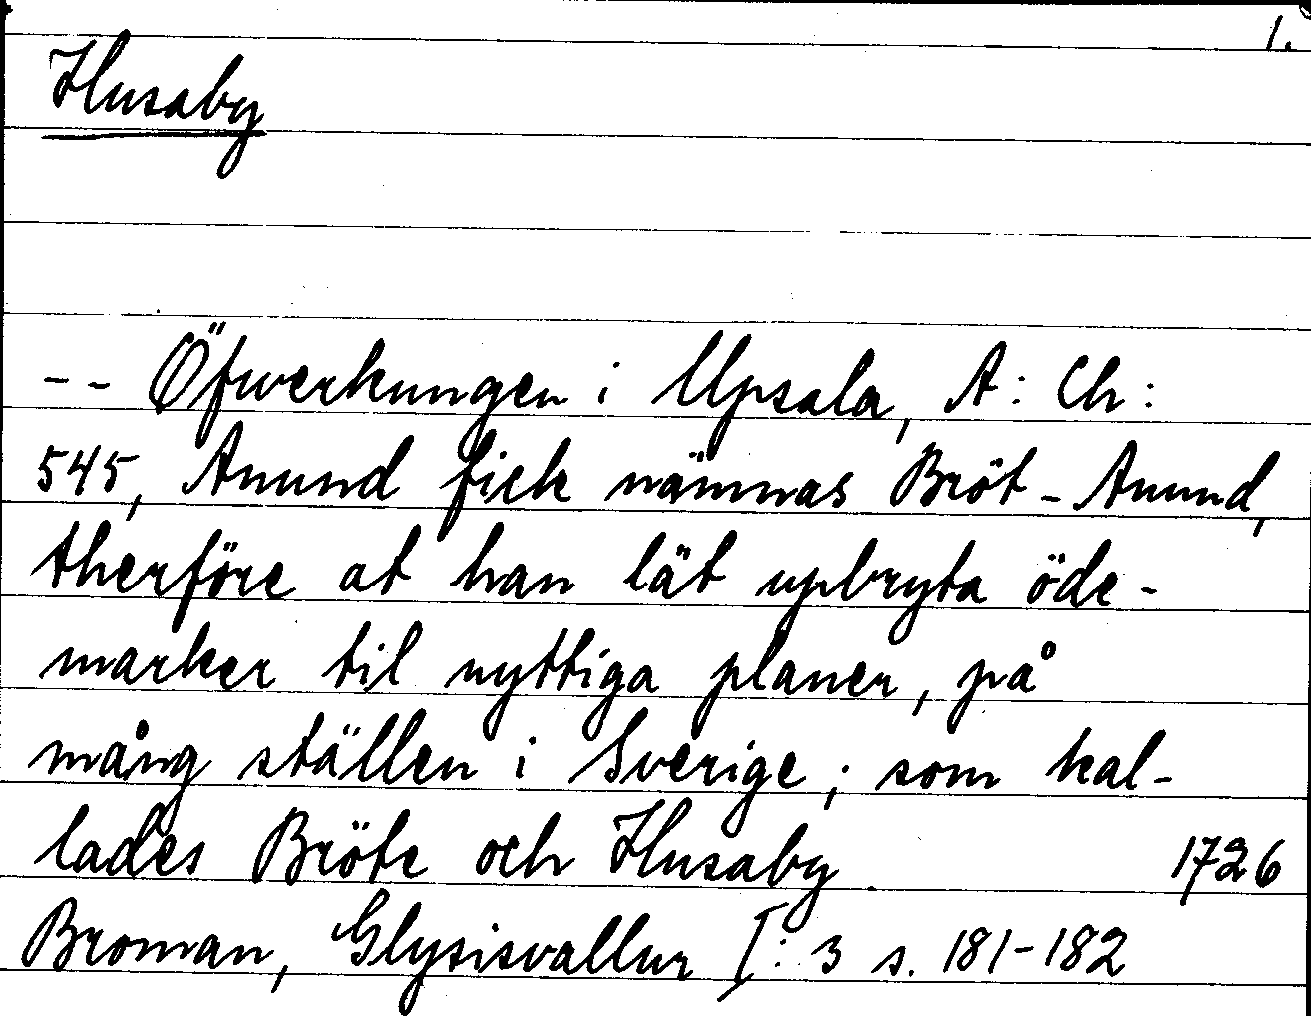 1.
Husaby
-- Öfwerkungen i Upsala, A: Ch:
545, Anund fick nämnas Bröt-Anund,
therföre at han lät upbryta öde-
marker til nyttiga planer, på
mång ställen i Sverige; som kal-
lades Bröte och Husaby. 1726
Broman, Glysisvallur I: 3 s. 181-182